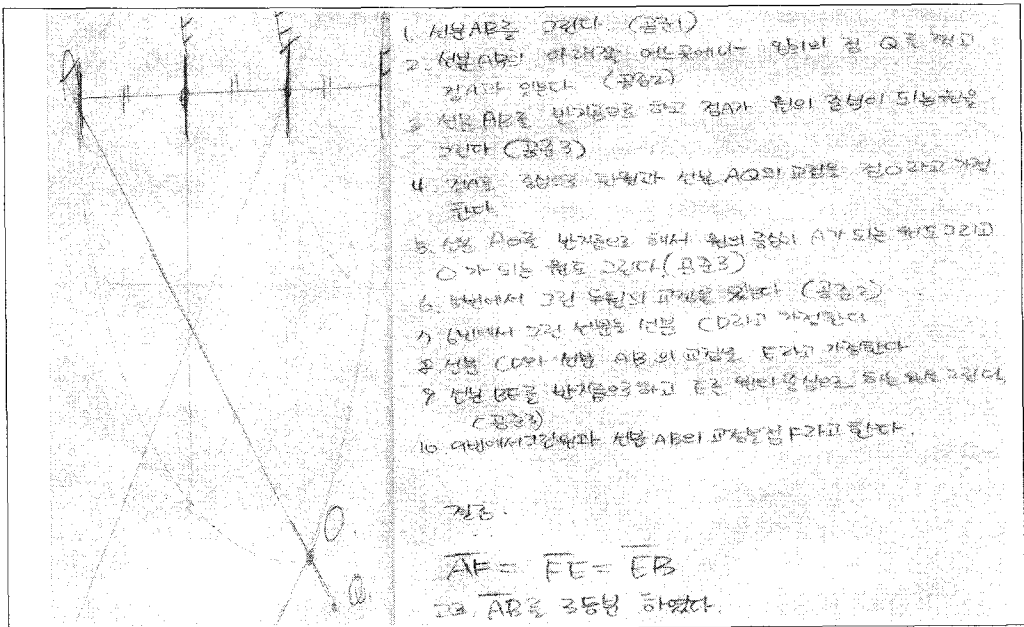 A
F
E
O
Q
1 선분AB를 그린다 (공준1)
2. 선분AB의 아래쪽 어느곳에나 임의의 점 Q를 찍고
점A와 잇는다 (공준2)
3 선분 AB를 반지름으로 하고 점A가 원의 중심이 되는원을
그린다 (공준3)
4 중심으로 한원과 선분 AQ의 교점을 점O라고 가정
한다
5 선분 AO를 반지름으로 해서 원의 중심이 A가 되는 원도그리고
O가 되는 원도 그린다.(공준3)
6. 5번에서 그린 두원의 교점을 잇는다 (공준2)
7 6번에서 그린 선분을 선분 CD라고 가정한다
8 선분 CD와 선분 AB의 교점을 E라고 가정한다
9 선분 BE를 반지름으로하고 E로 원의 중심으로 되는 원도 그린다
(공준3)
10 9번에서그린원과 선분 AB의 교점을점 F라고 한다.
결론.
AF = FE = EB
AB를 3등분 하였다.